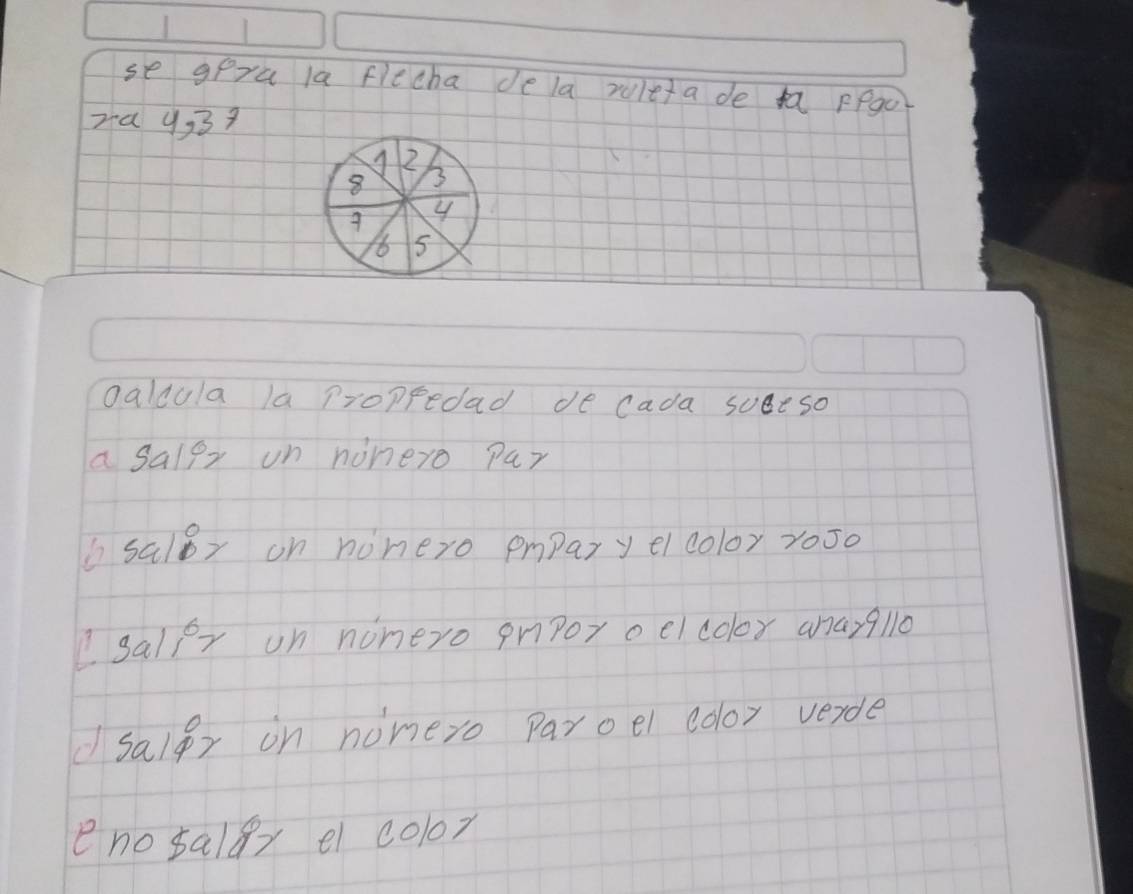 se gira la flecha de la ruleta de la figu-
ra 4,37
1 2 3
8 4
7 6 5
calcula la Propiedad de cada suceso
a salir un número Par
b salir un número impar y el color rojo
c salir un número impor o el color amarillo
d salir ún número Par o el color verde
e no salir el color